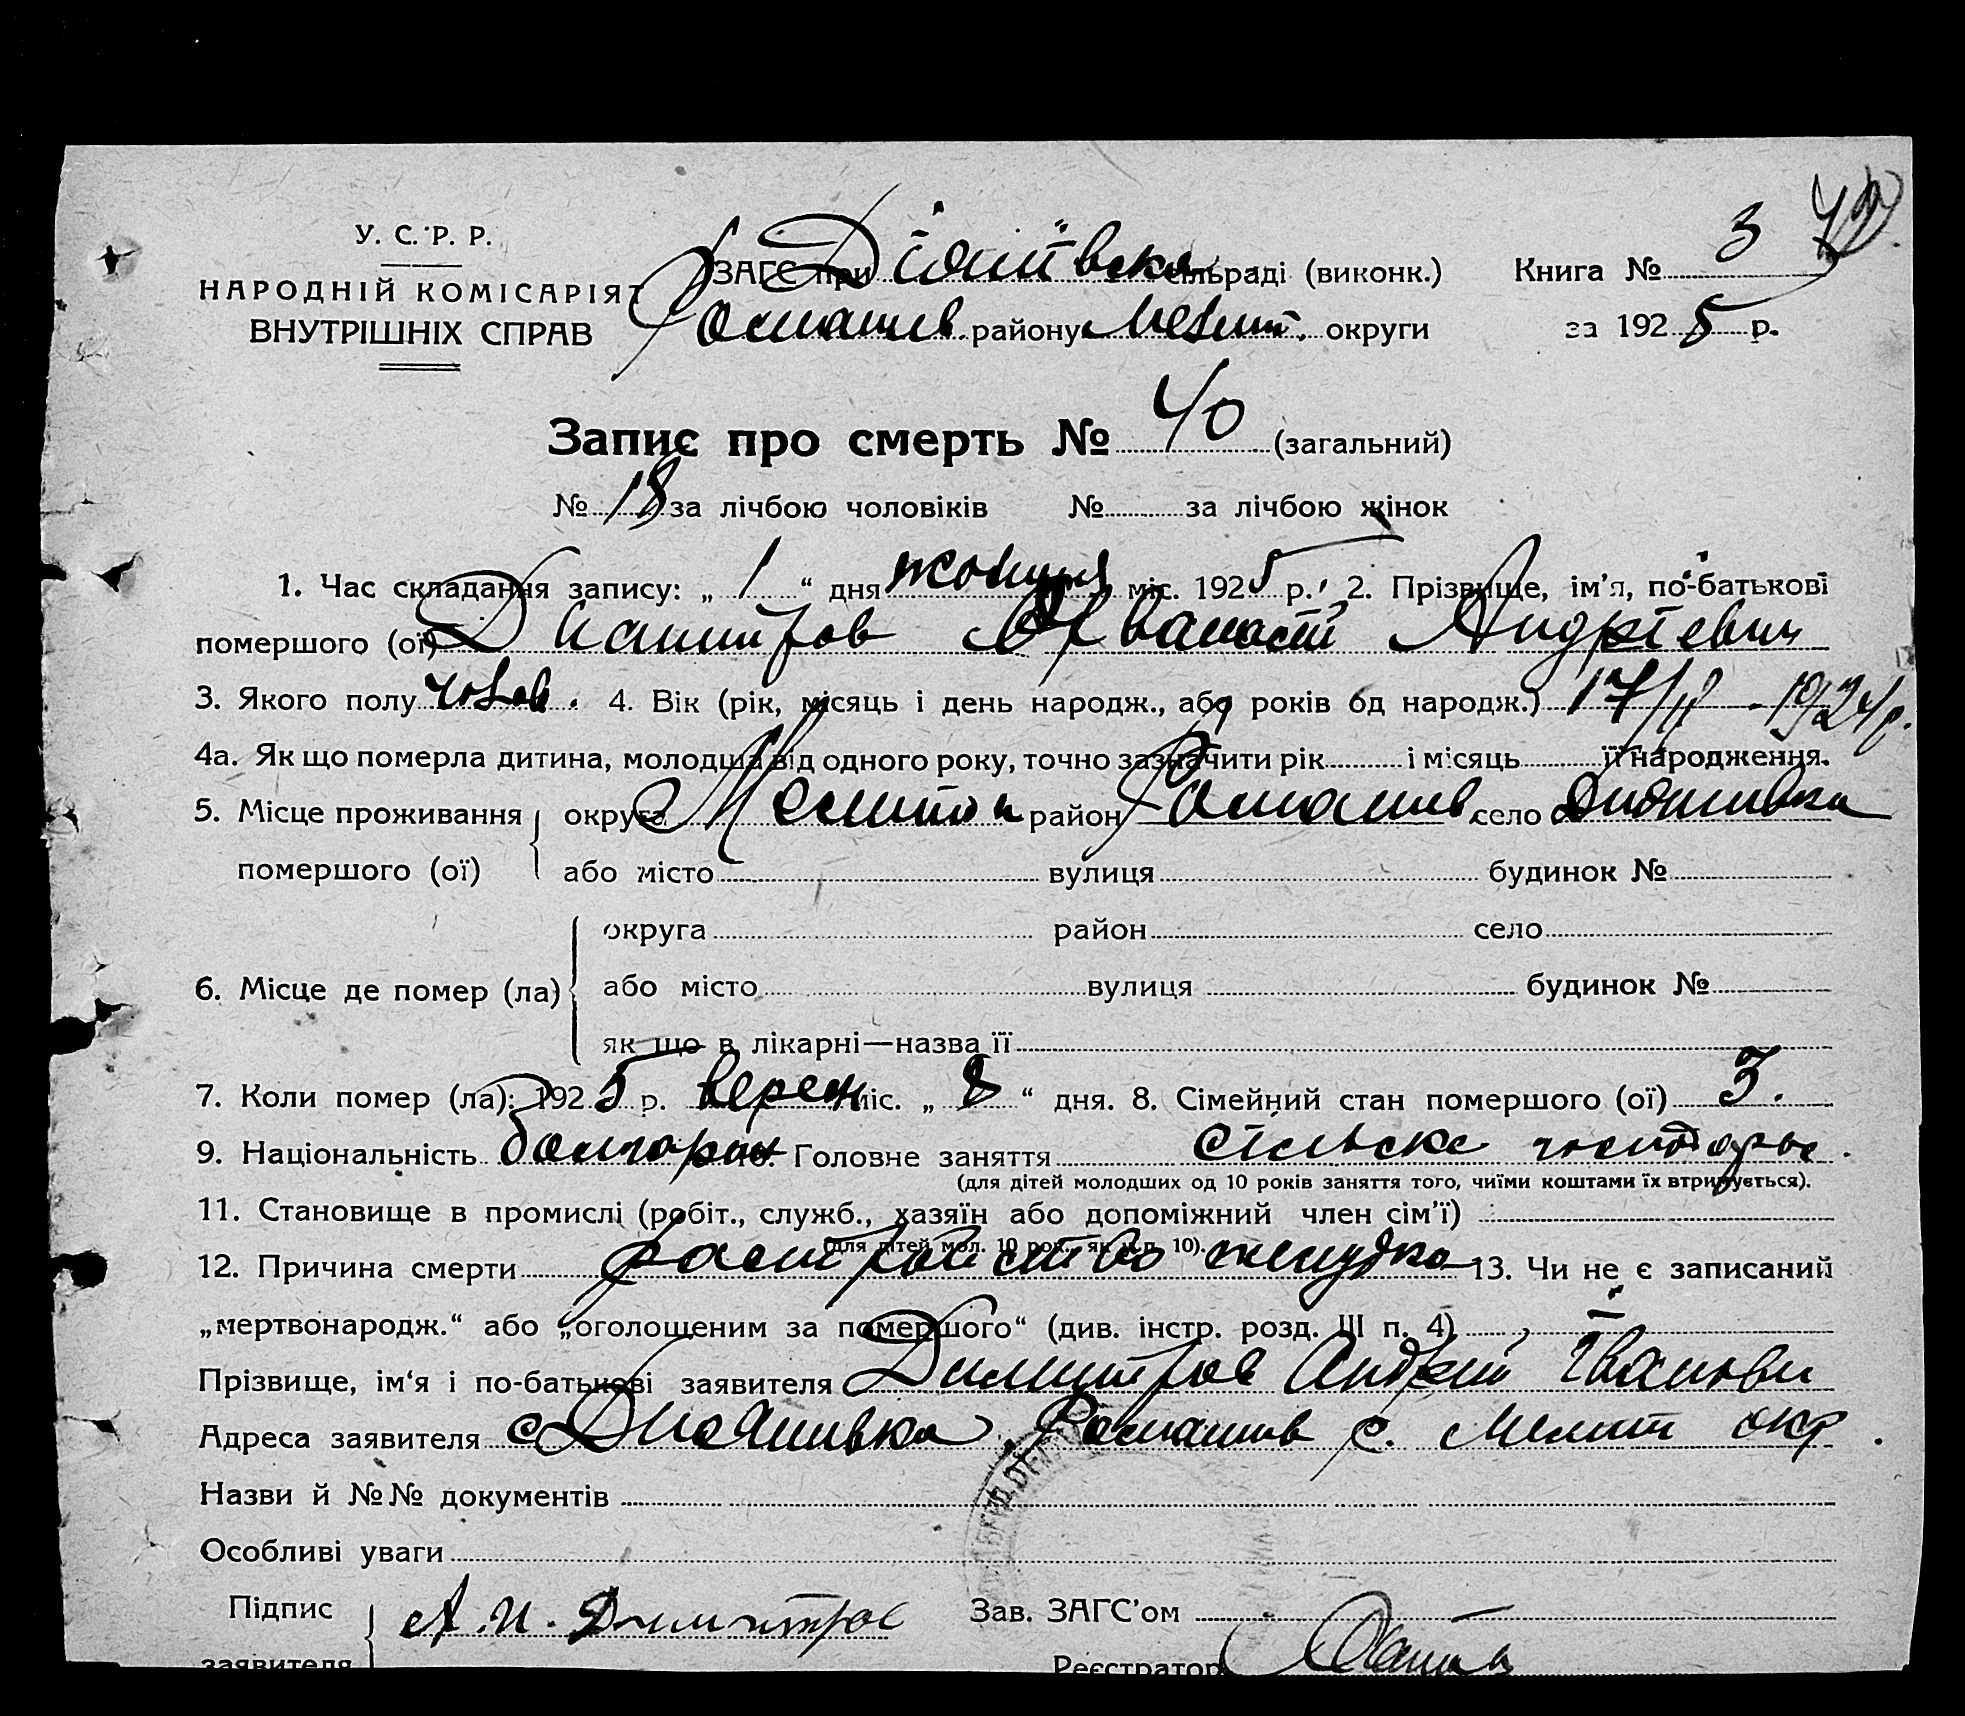 У. С. Р. Р.
НАРОДНІЙ КОМІСАРІЯТ
ВНУТРІШНІХ СПРАВ
ЗАГС при сільраді (виконк.)
Ромашев. району Меліт. округи
Книга № 3
за 1925 р.
Запис про смерть № 40 (загальний)
№ 18 за лічбою чоловіків № за лічбою жінок
1. Час складання запису: „ 1 “ дня жовтня міс. 1925 р. 2. Прізвище, ім’я, по-батькові
помершого (ої) Димитров Андрієвич
3. Якого полу чолов. 4. Вік (рік, місяць і день народж., або років од народж.) 1924 р.
4а. Як що померла дитина, молодша від одного року, точно зазначити рік і місяць її народження.
5. Місце проживання округа Мелитоп район Ромашив село
помершого (ої) або місто вулиця будинок №
округа район село
6. Місце де помер (ла) або місто вулиця будинок №
як що в лікарні—назва її
7. Коли помер (ла): 1925 р. верес міс. „ 8 “ дня. 8. Сімейний стан помершого (ої) 3.
9. Національність болгарин 10. Головне заняття сільске господарьс.
(для дітей молодших од 10 років заняття того, чиїми коштами їх втримується).
11. Становище в промислі (робіт., служб., хазяїн або допоміжний член сім’ї)
(для дітей мол. 10 рок., як у п. 10).
12. Причина смерти растройство желудка 13. Чи не є записаний
„мертвонародж.“ або „оголошеним за помершого“ (див. інстр. розд. III п. 4)
Прізвище, ім‘я і по-батькові заявителя Димитров Андрій Іванови
Адреса заявителя Ромашив р. Мелит окр.
Назви й №№ документів
Особливі уваги
Підпис А. И. Димитров Зав. ЗАГС’ом
заявителя Реєстратор